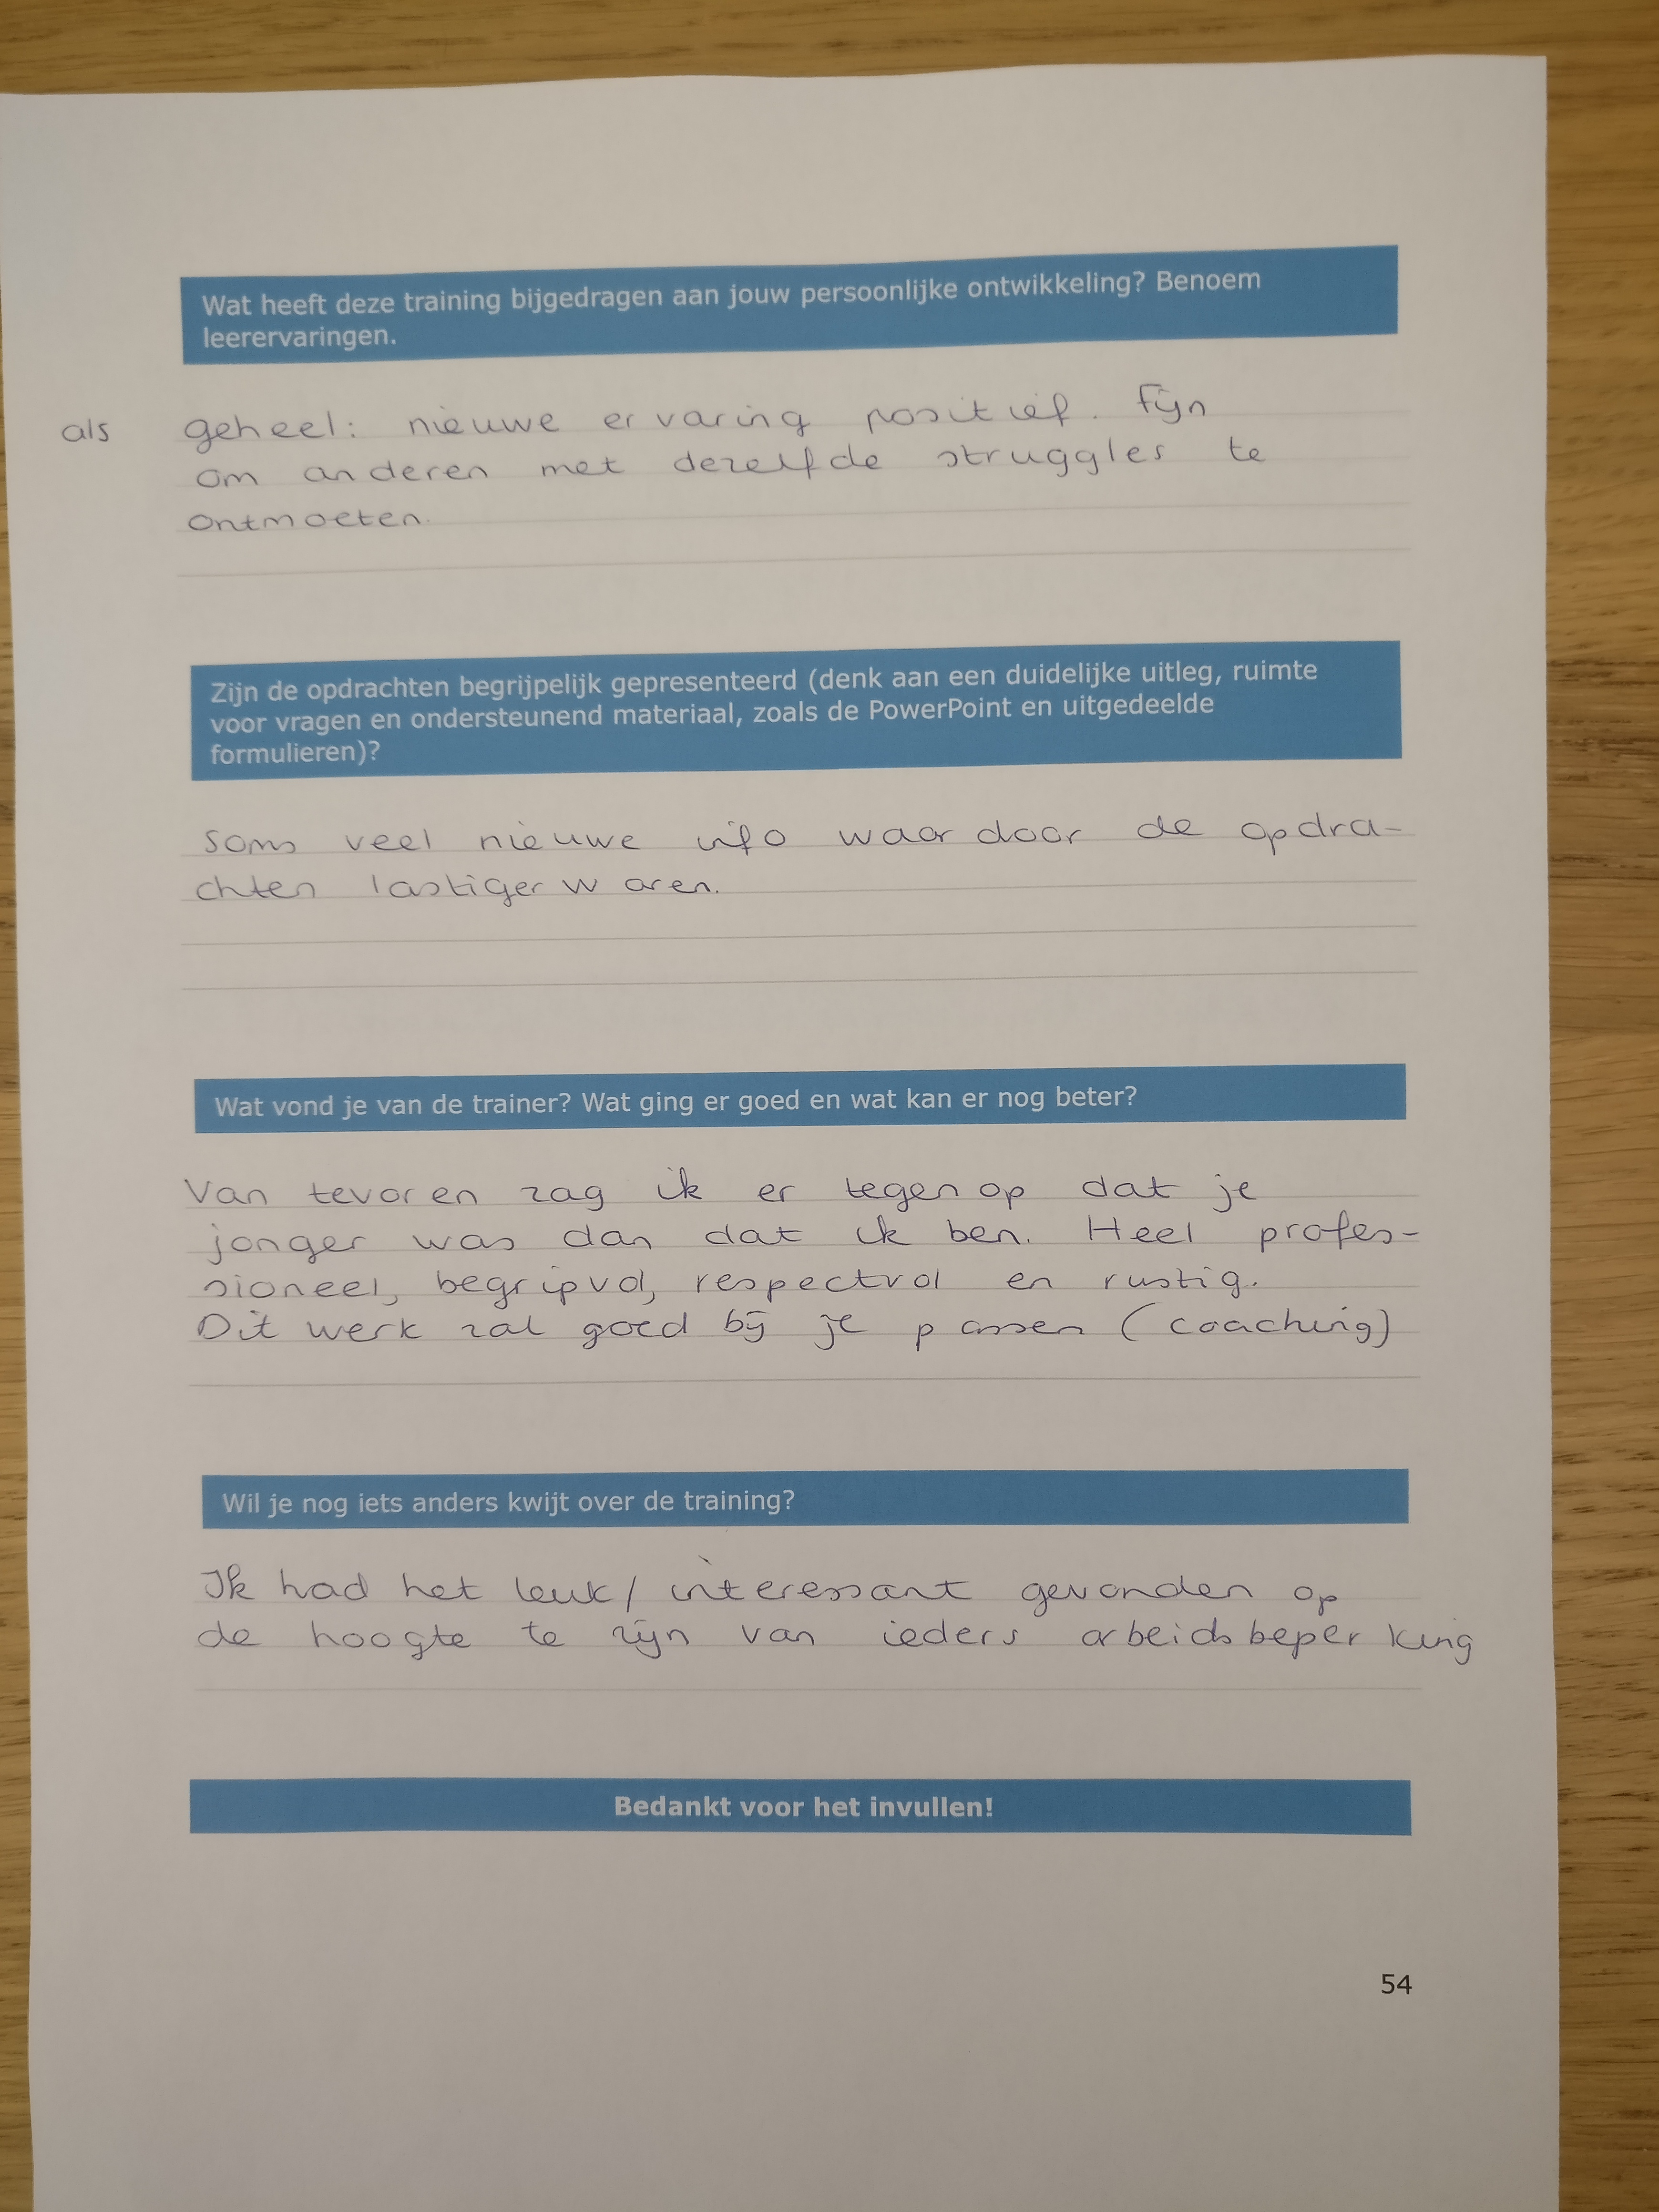 Wat heeft deze training bijgedragen aan jouw persoonlijke ontwikkeling? Benoem
leerervaringen.
als geheel: nieuwe ervaring positief. Fijn
om anderen met dezelfde struggles te
ontmoeten.
Zijn de opdrachten begrijpelijk gepresenteerd (denk aan een duidelijke uitleg, ruimte
voor vragen en ondersteunend materiaal, zoals de PowerPoint en uitgedeelde
formulieren)?
Soms veel nieuwe info waardoor de opdra-
chten lastiger waren.
Wat vond je van de trainer? Wat ging er goed en wat kan er nog beter?
Van tevoren zag ik er tegenop dat je
jonger was dan dat ik ben. Heel profes-
sioneel, begripvol, respectvol en rustig.
Dit werk zal goed bij je passen (coaching)
Wil je nog iets anders kwijt over de training?
Ik had het leuk/interessant gevonden op
de hoogte te zijn van ieders arbeidsbeperking
Bedankt voor het invullen!
54